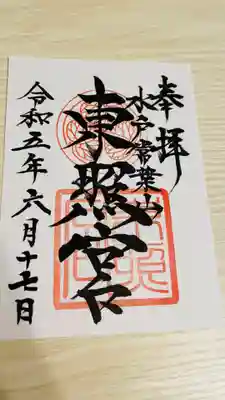 奉拝
水戸常葉山
東照宮
令和五年六月十七日